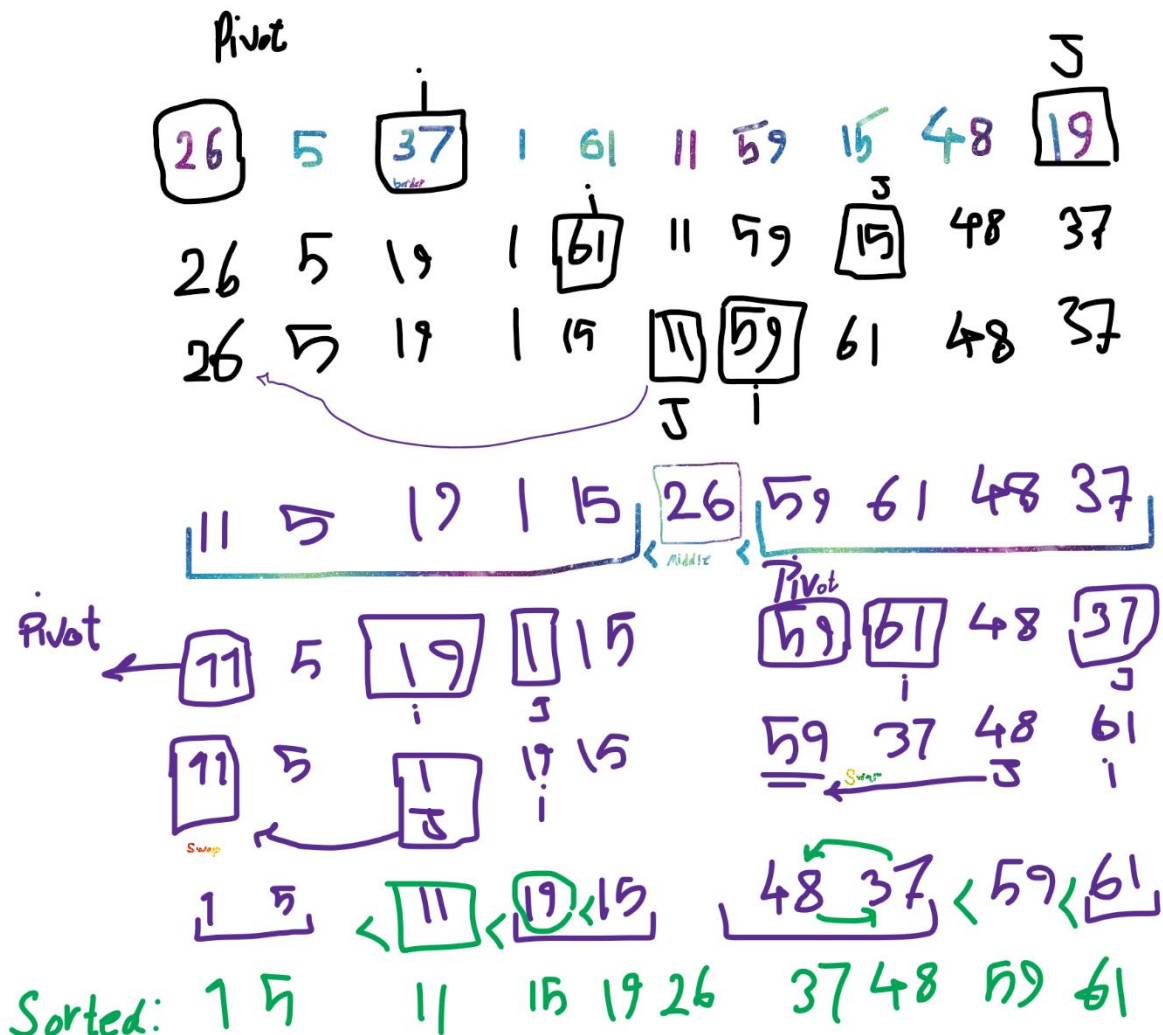 Pivot
i J
26 5 37 1 61 11 59 15 48 19
border
i J
26 5 19 1 61 11 59 15 48 37
26 5 19 1 15 11 59 61 48 37
J i
11 5 19 1 15 26 59 61 48 37
< Middle <
Pivot
Pivot 11 5 19 1 15 59 61 48 37
i J i J
11 5 1 19 15 59 37 48 61
J i Swap J i
Swap
1 5 < 11 < 19 < 15 48 37 < 59 < 61
Sorted: 1 5 11 15 19 26 37 48 59 61